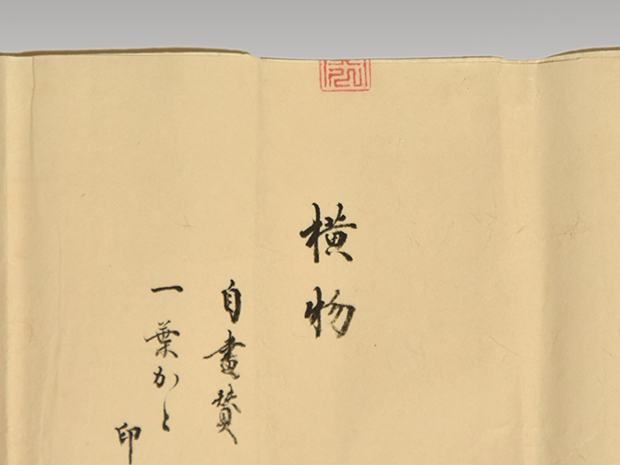 横物
自畫賛
一葉かと
印